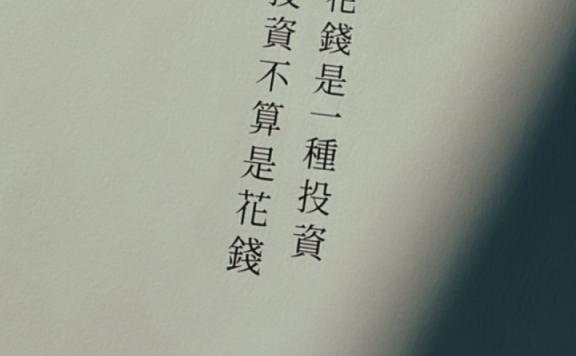 花錢是一種投資
投資不算是花錢